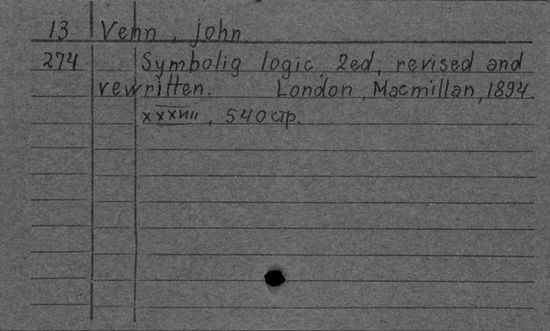 13 Venn, john
274 Symbolig logic, 2ed, revised and
rewritten. London, Macmillan, 1894
xxxVIII, 540 стр.